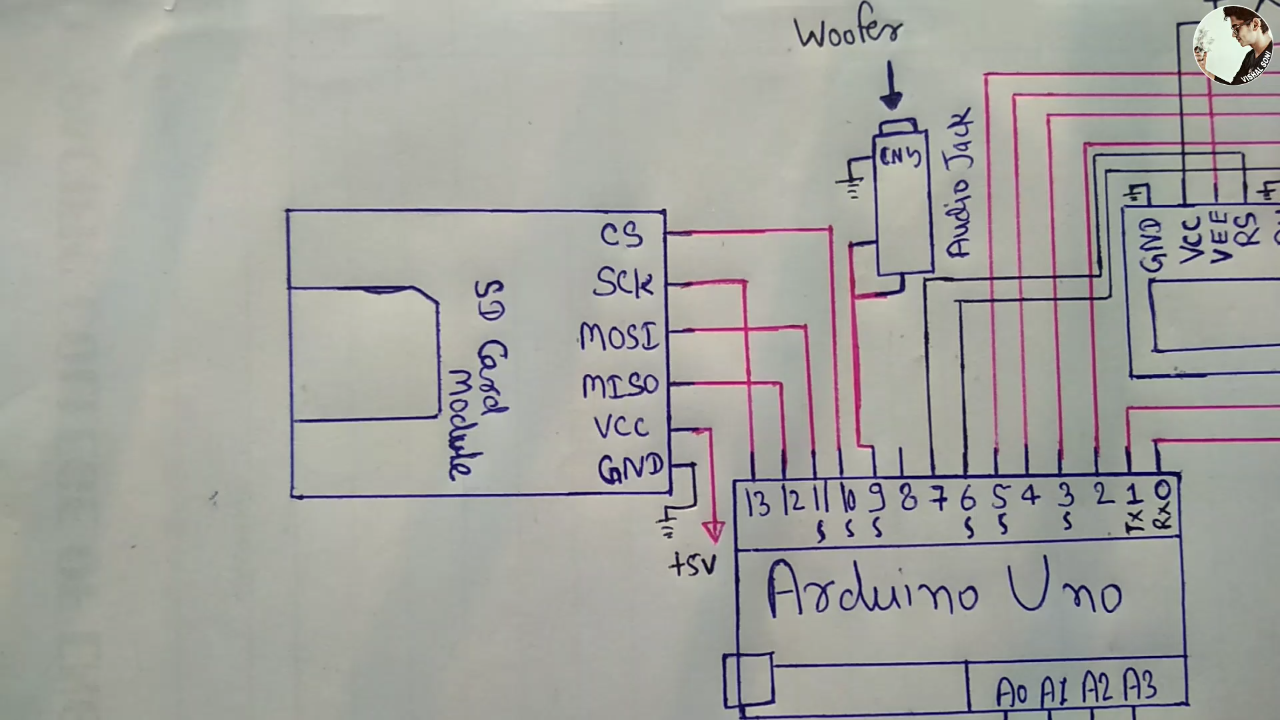 Woofer
CN5
Audio Jack
GND
VCC
VEE
RS
CS
SCK
MOSI
MISO
VCC
GND
SD Card
Module
+5V
13 12 11 10 9 8 7 6 5 4 3 2 1 0
S S S S S S TX RX
Arduino Uno
A0 A1 A2 A3
VISHAL SONI